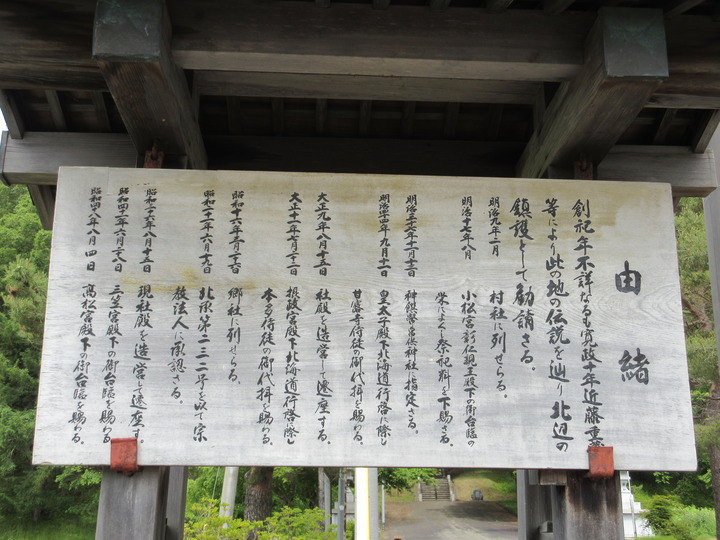 由緒
創祀年不詳なるも寛政十年近藤重蔵
等により此の地の伝説を辿り北辺の
鎮護として勧請さる。
明治九年二月 村社に列せらる。
明治十七年八月 小松宮彰仁親王殿下の御台臨の
栄に浴し祭祀料を下賜さる。
明治三十七年十一月十三日 神饌幣帛供進神社に指定さる。
明治四十四年九月十一日 皇太子殿下北海道行啓に際し
甘露寺侍従の御代拝を賜わる。
大正九年八月十五日 社殿を造営して遷座する。
大正十一年七月十一日 摂政宮殿下北海道行啓に際し
本多侍従の御代拝を賜わる。
昭和十六年三月二十六日 郷社に列せらる。
昭和二十一年六月二十九日 北承第二三二号を以て宗
教法人に承認さる。
昭和三十六年八月十三日 現社殿を造営して遷座す。
昭和四十三年六月二十八日 三笠宮殿下の御台臨を賜わる
昭和四十八年八月四日 高松宮殿下の御台臨を賜わる。